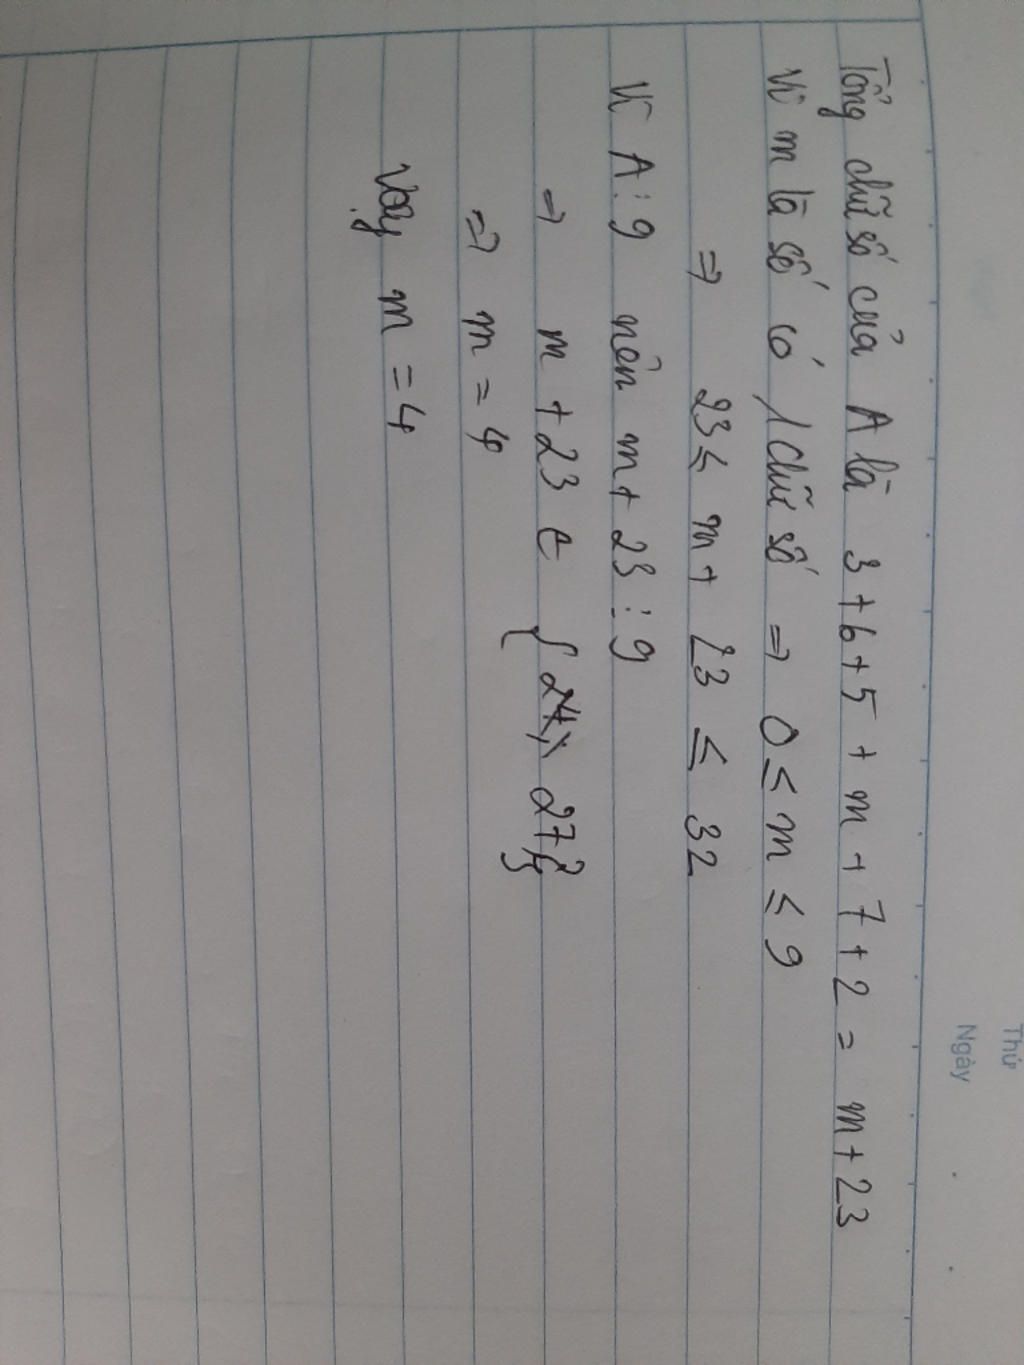 Thứ
Ngày
Tổng chữ số của A là 3+6+5+m+7+2 = m+23
Vì m là số có 1 chữ số ⇒ 0 ≤ m ≤ 9
⇒ 23 ≤ m + 23 ≤ 32
Vì A ⋮ 9 nên m + 23 ⋮ 9
⇒ m + 23 ∈ { 27 }
⇒ m = 4
Vậy m = 4